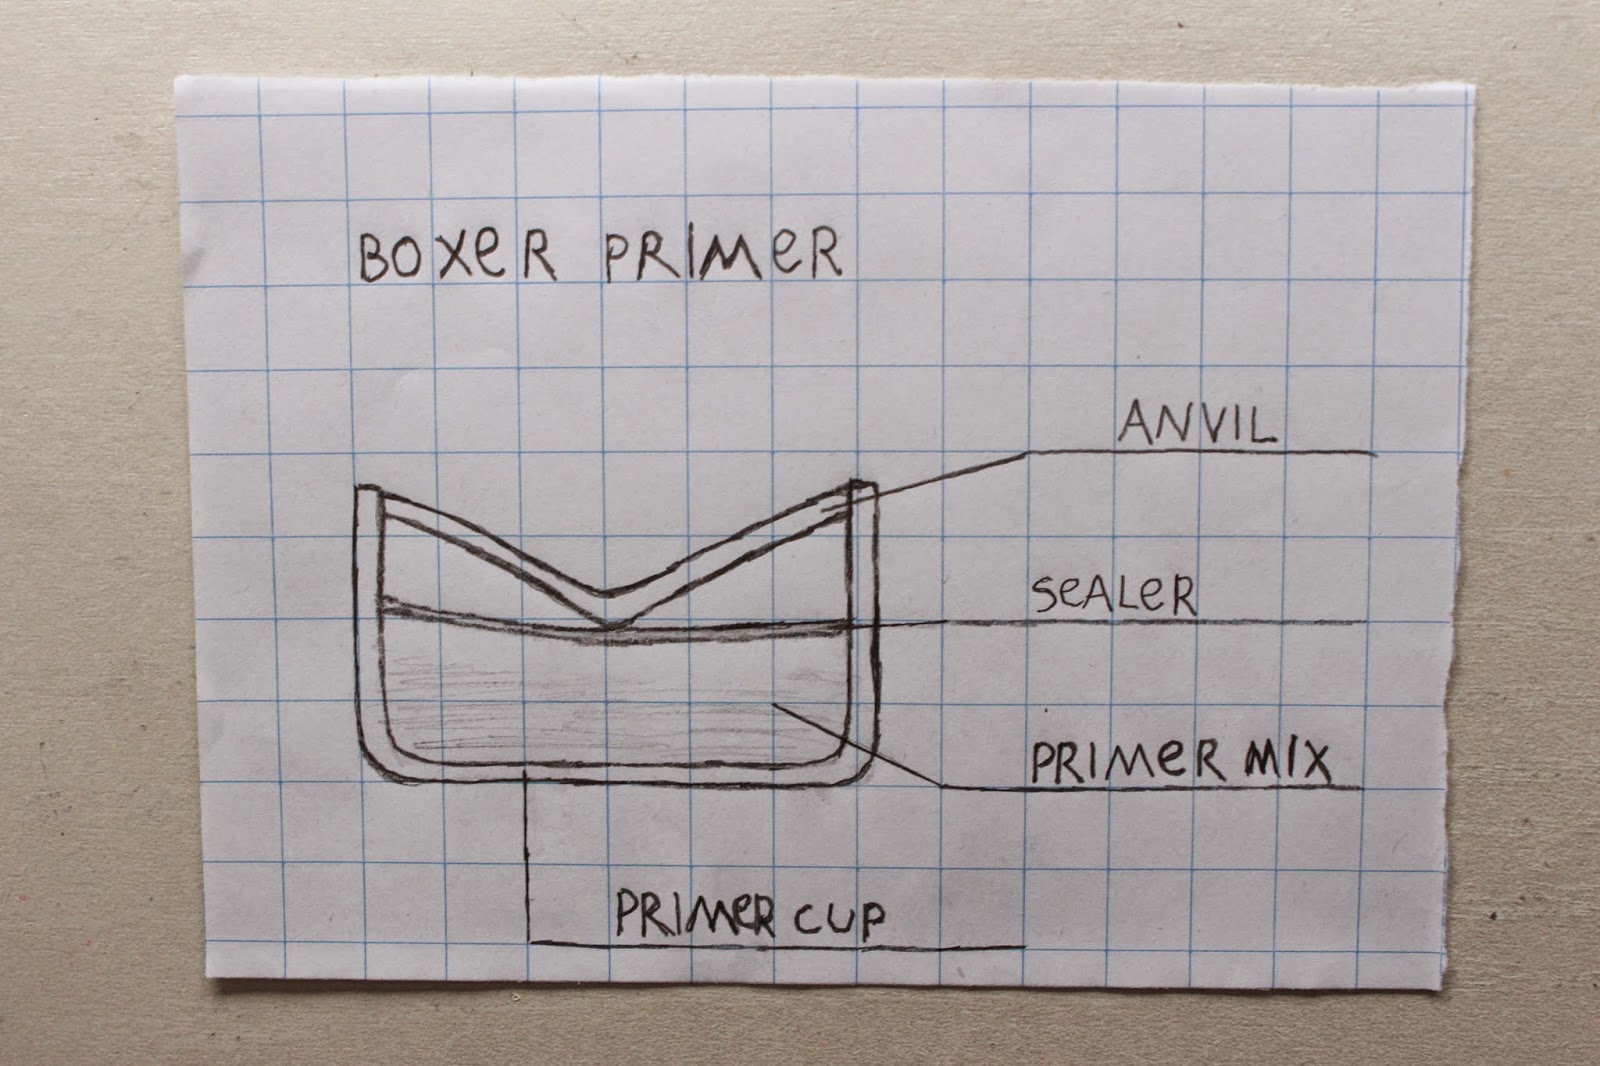 BOXeR PRIMeR
ANVIL
SeALeR
PRIMeR MIX
PRIMeR CUP